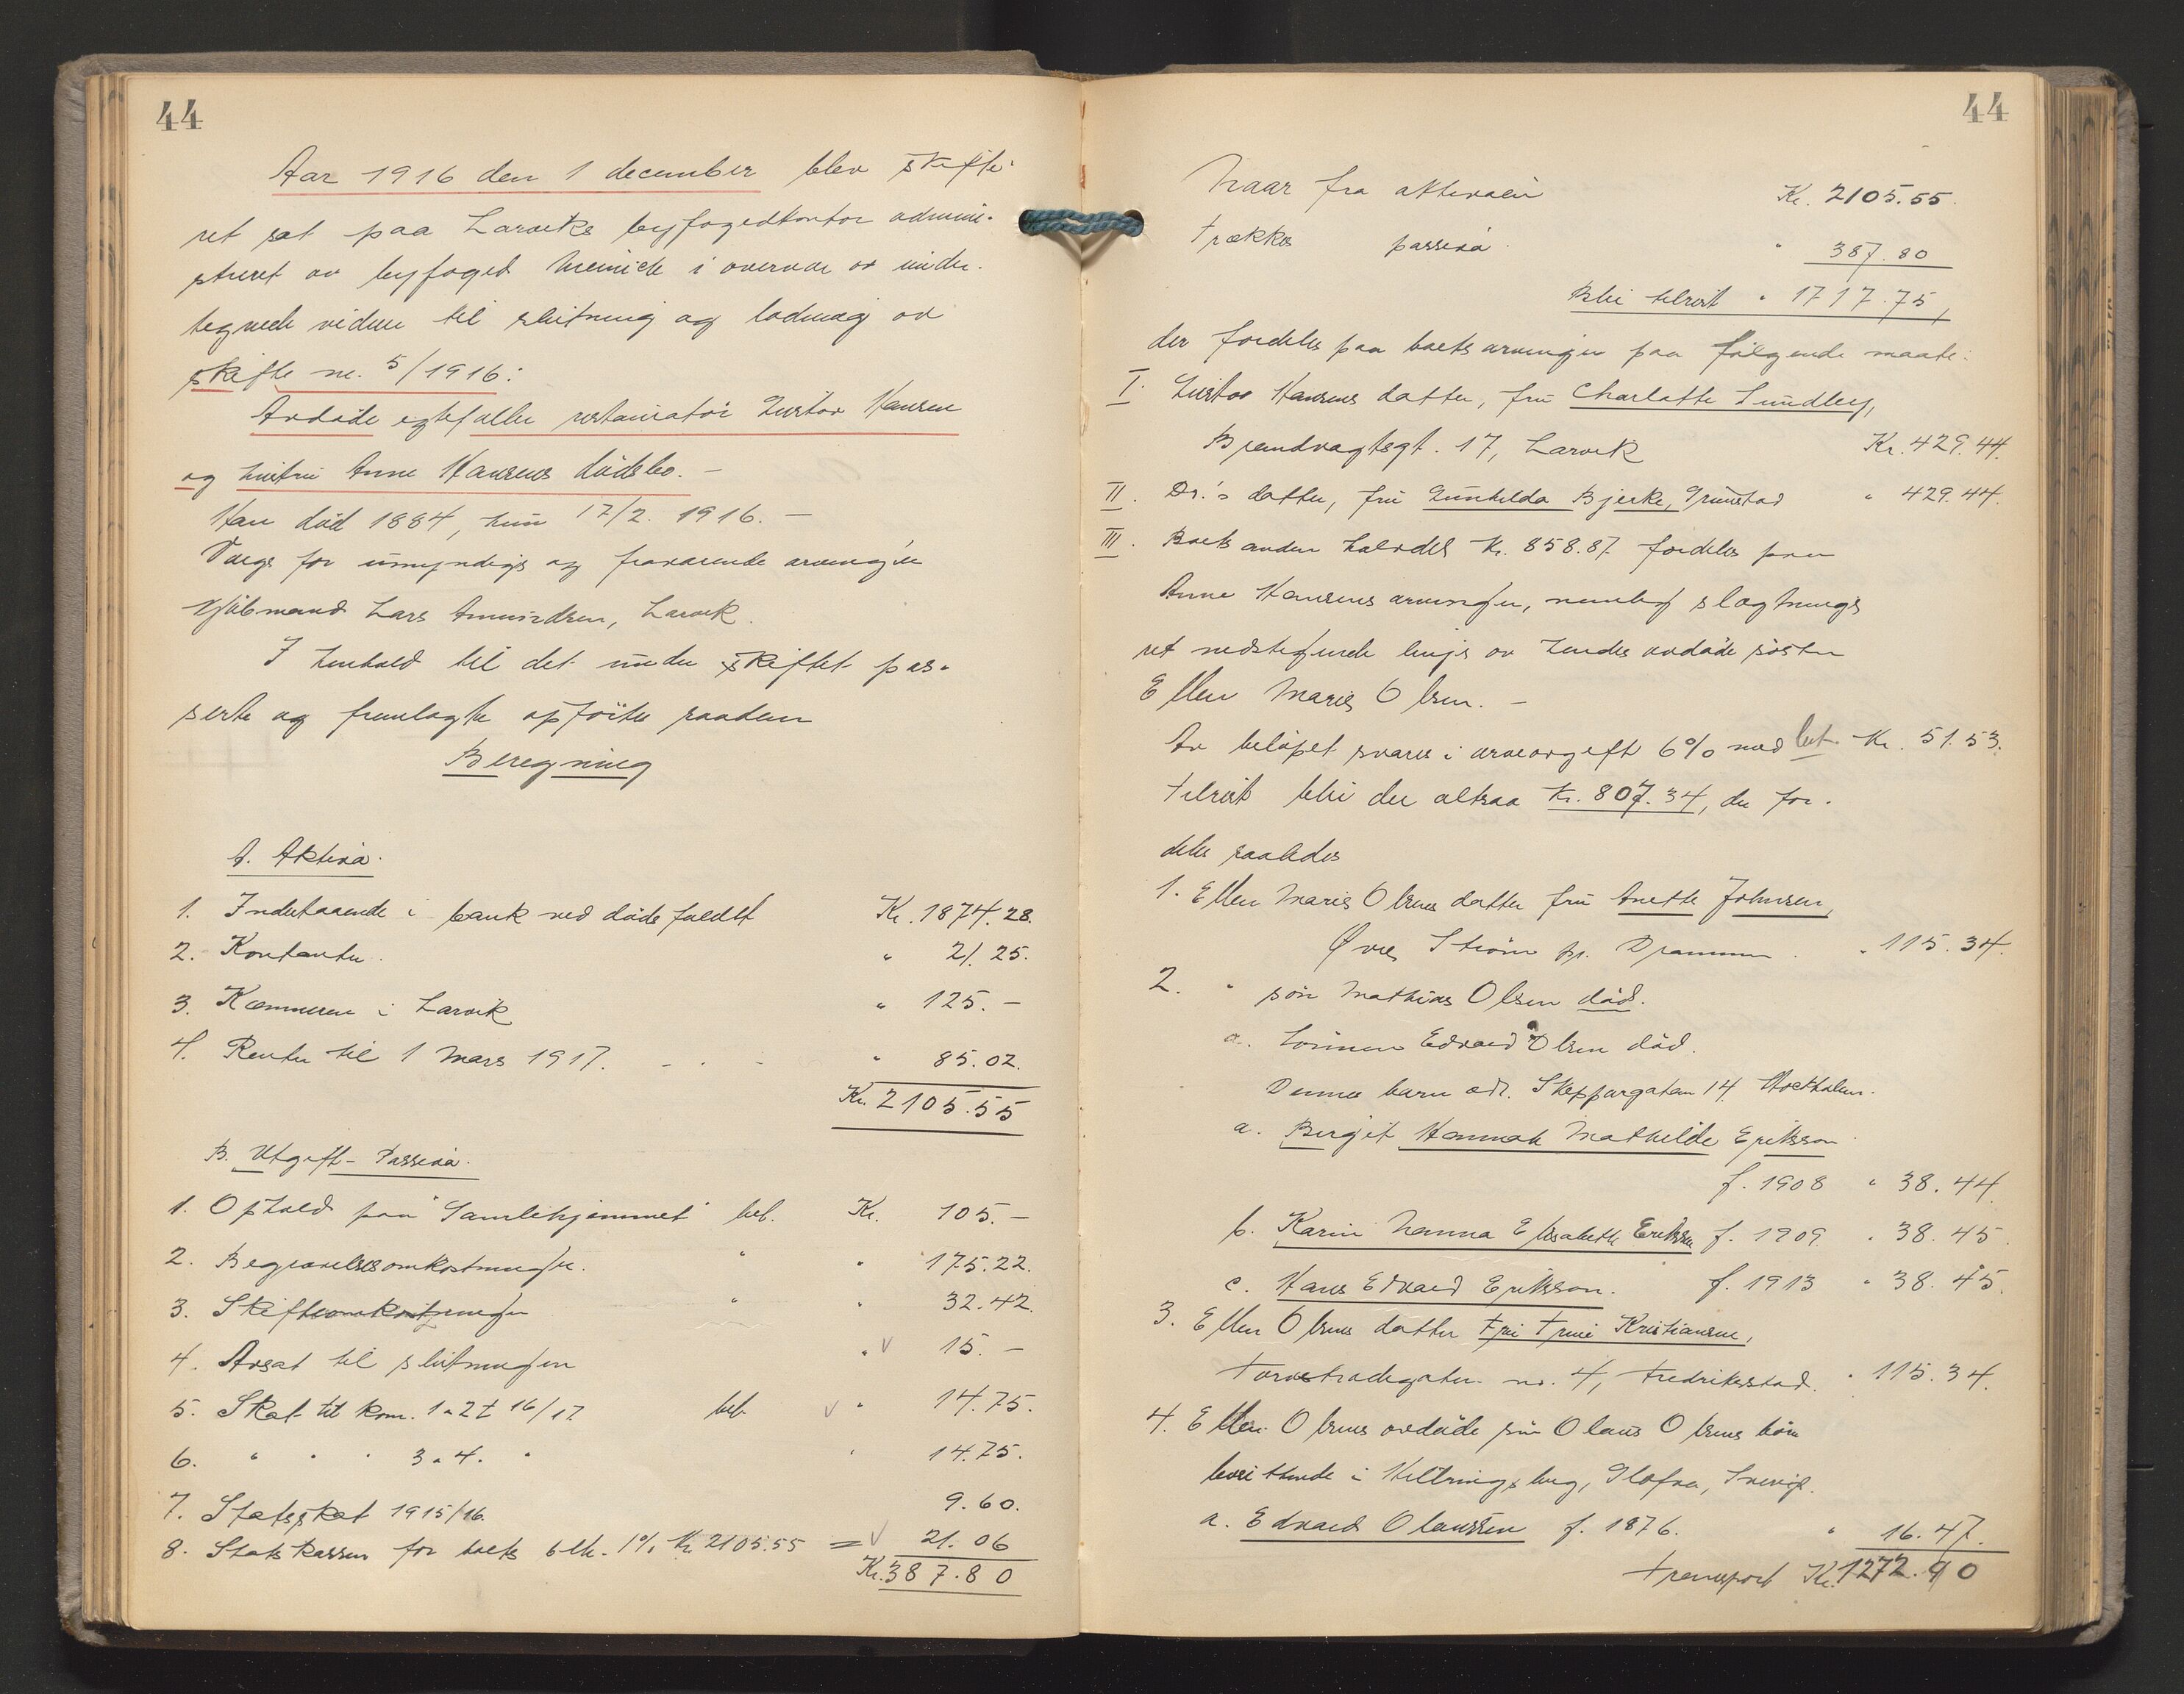 44
Aar 1916 den 1 december blev skifte-
ret sat paa Larviks byfogedkontor admini-
streret av byfoged Meinich i overvær av under-
tegnede vidner til slutning og lodning av
skifte nr. 5/1916:
Avdøde egtefæller restauratør Gustav Hansen
og hustru Anne Hansens dødsbo. –
Han død 1884, hun 17/2. 1916. –
Værge for umyndige og fraværende arvinger
Kjøbmand Lars Amundsen, Larvik.
I henhold til det under skiftet pas-
serte og fremlagte opføites saadan
Beregning
A. Aktiva.
1. Indestaaende i bank ved dødsfaldet Kr. 1874.28.
2. Kontanter. " 21.25.
3. Kæmneren i Larvik " 125. –
4. Renter til 1 mars 1917. - . - " 85.02.
Kr. 2105.55
B. Utgift - Passiva.
1. Ophold paa "Samlehjemmet" bet. Kr. 105. –
2. Begravelsesomkostninger. " " 175.22.
3. Skifteomkostninger " " 32.42.
4. Avsat til slutningen " 15. –
5. Skat til kom. 1 & 2 t 16/17 bet. " 14.75.
6. " " " 3 & 4. " " 14.75.
7. Statsskat 1915/16. 9.60.
8. Statskassen for boets beh. 1% Kr. 2105.55 = 21.06
Kr. 387.80
44
Naar fra aktivaen Kr. 2105.55.
trækkes passiva. " 387.80
Blir tilrest " 1717.75,
der fordeles paa boets arvinger paa følgende maate:
I. Gustav Hansens datter, fru Charlotte Lundberg,
Brandvagtsgt. 17, Larvik Kr. 429.44.
II. Do.'s datter, fru Gunhilda Bjerke, Grimstad " 429.44.
III. Boets anden halvdel Kr. 858.87 fordeles paa
Anne Hansens arvinger, nemlig slægtninge i
ret nedstigende linje av hendes avdøde søster
Ellen Marie Olsen. –
Av beløpet svares i arveavgift 6% med Kr. 51.53.
tilrest blir der altsaa Kr. 807.34, der for-
deles saaledes
1. Ellen Marie Olsens datter fru Anette Johnsen,
Øvre Strøm pr. Drammen. " 115.34.
2. " søn Mathias Olsen død.
a. Sønnen Edvard Olsen død.
Dennes barn adr. Skeppargatan 14 Stockholm.
a. Birgit Hannah Mathilde Eriksson
f. 1908 " 38.44.
b. Karin Nanna Elisabeth Eriksson f. 1909. " 38.45.
c. Hans Edvard Eriksson. f. 1913 " 38.45.
3. Ellen Olsens datter Fru Trine Kristiansen,
Torvestradegaten no. 4, Fredriksstad. " 115.34.
4. Ellen Olsens avdøde søn Olaus Olsens børn
bosittende i Sverige.
a. Edvard Olaussen f. 1876. " 16.47.
Transport Kr. 1272.90